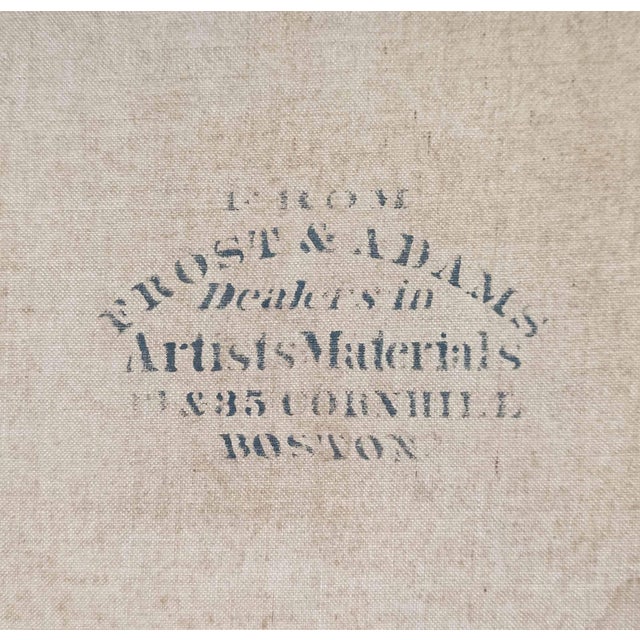 FROM
FROST & ADAMS
Dealers in
Artists Materials
& 35 CORNHILL
BOSTON